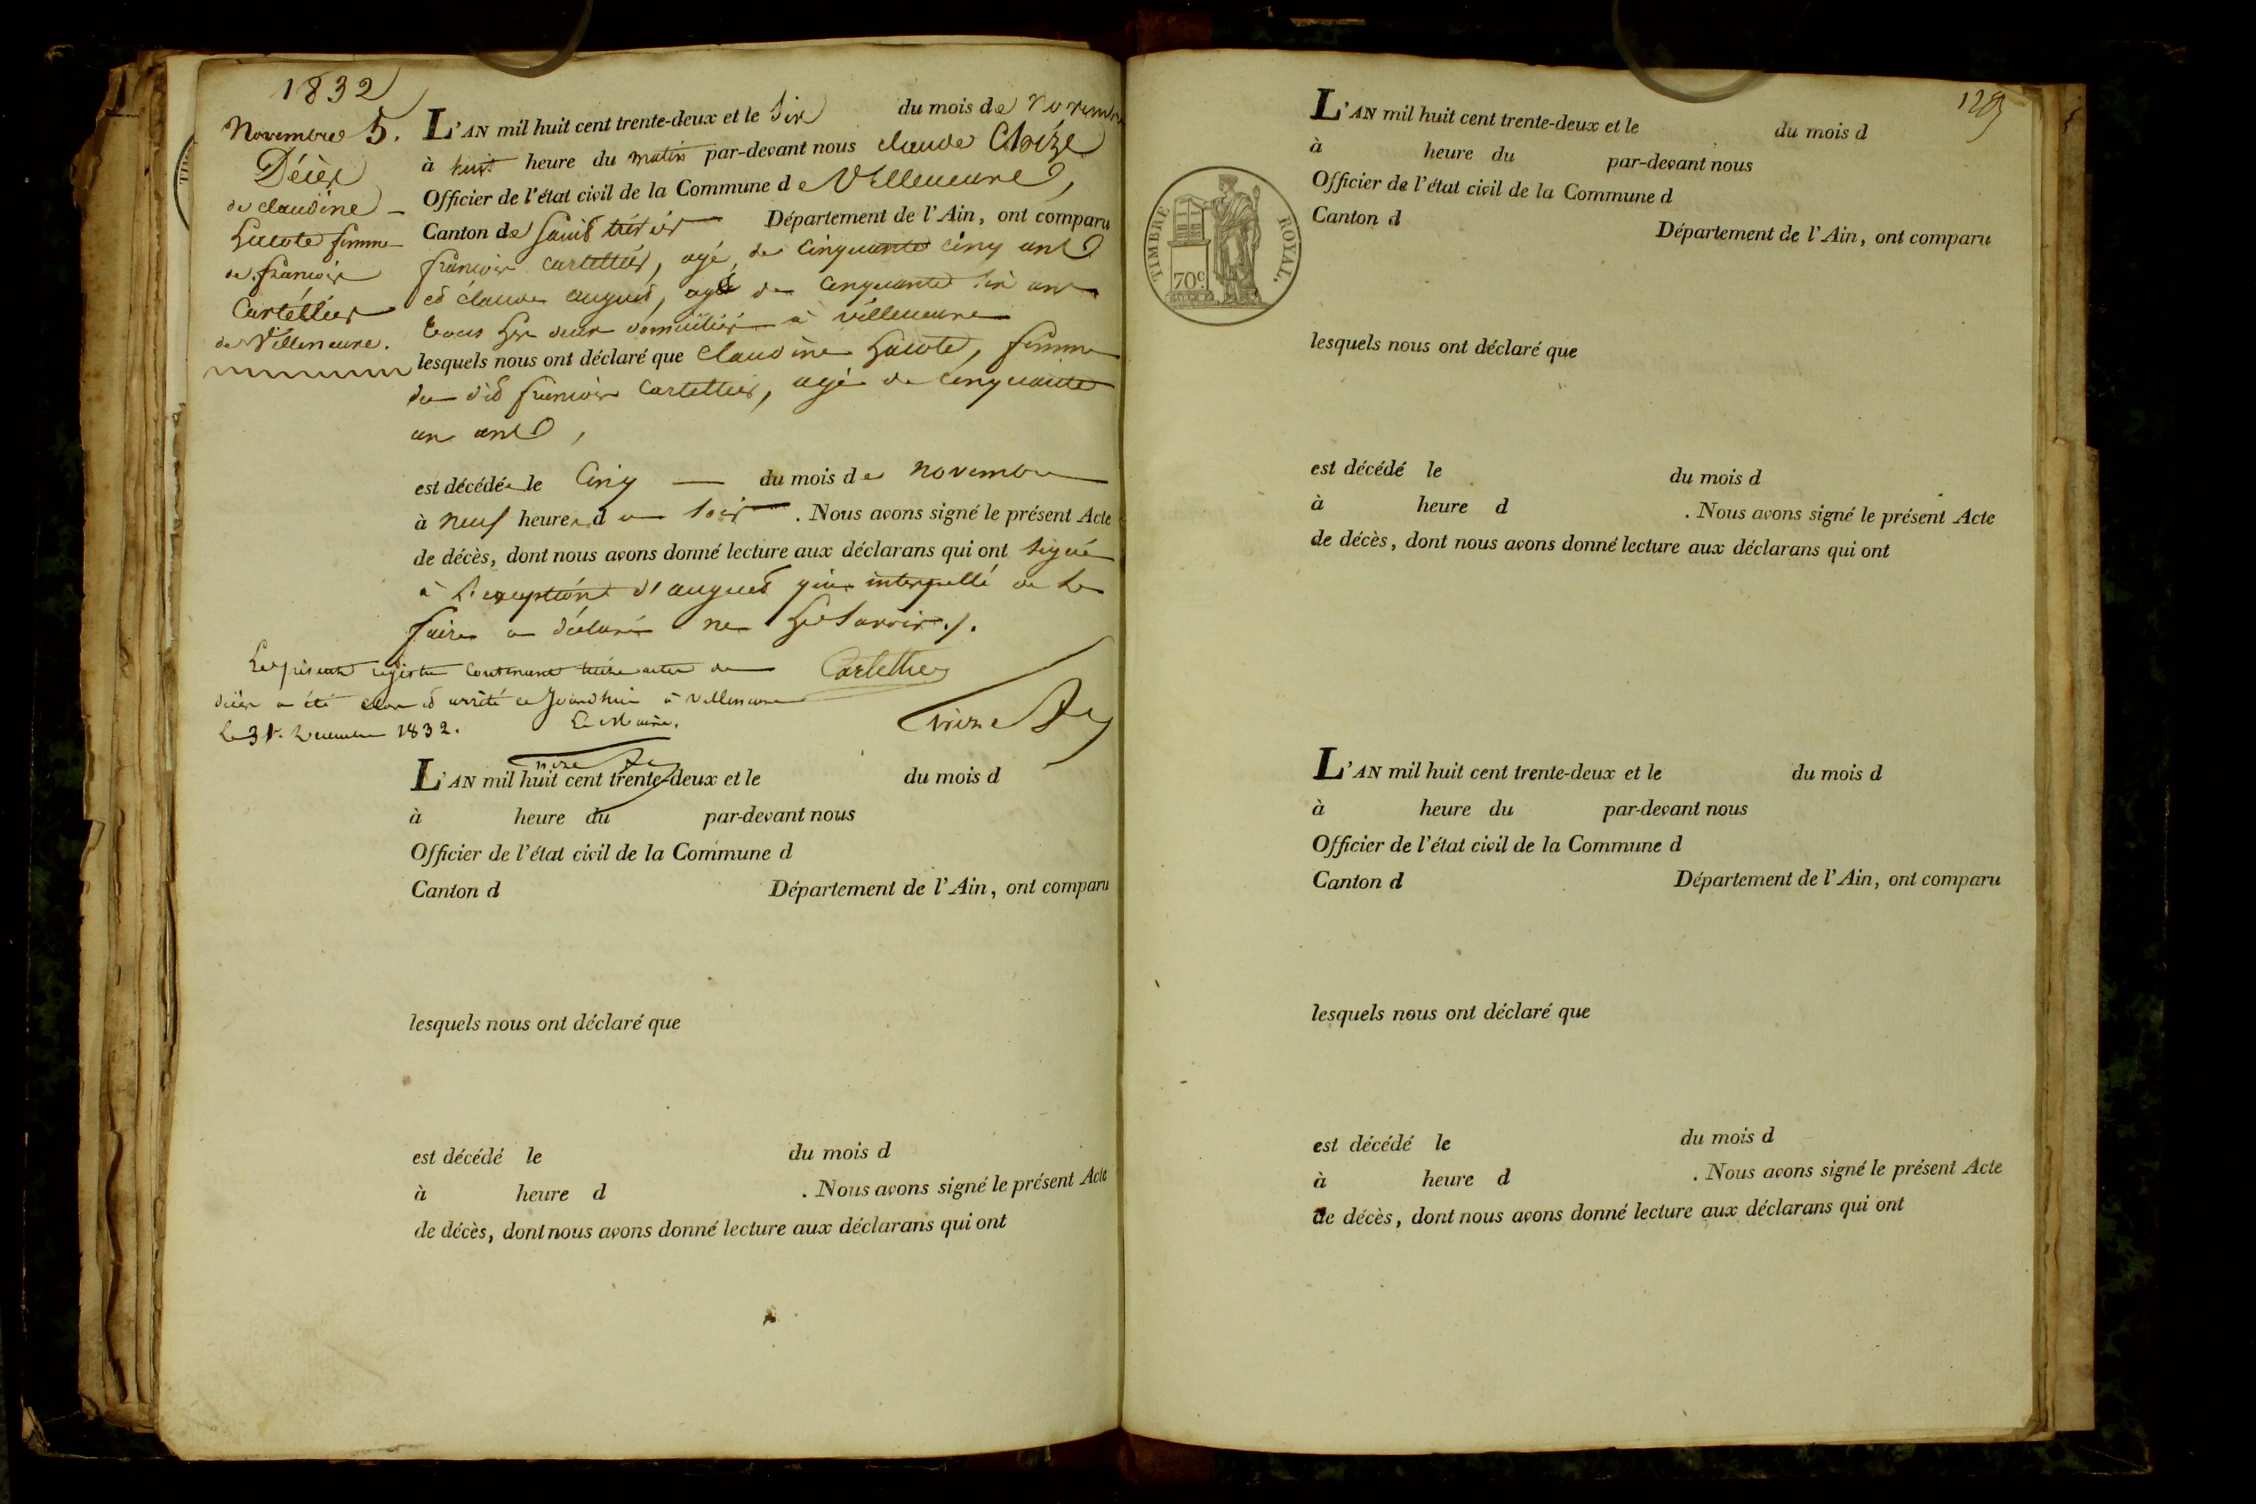 1832
Novembre 5.
Décès
de claudine
Lacote femme
de francois
Cartellier
de Villeneuve.
L'AN mil huit cent trente-deux et le Six du mois de Novembre
à huit heure du matin par-devant nous claude Chize
Officier de l'état civil de la Commune de Villeneuve,
Canton de Saint trivier Département de l'Ain, ont comparu
francois cartellier, agé de cinquante cinq ans
et claude auguet, agé de cinquante six ans
tous les deux domicilié à villeneuve
lesquels nous ont déclaré que Claudine Lacote, femme
du dit francois cartellier, agé de cinquante
un ans,
est décédée le Cinq du mois de novembre
à neuf heures du soir. Nous avons signé le présent Acte
de décès, dont nous avons donné lecture aux déclarans qui ont signé
à L'exception d'auguet qui interpellé de le
faire a déclaré ne le Savoir./.
Le présent registre contenant treize actes de
décès a été clos et arrêté ce Jourd'hui à Villeneuve
Le 31. Decembre 1832. Le Maire.
Cartellier
Chize
L'AN mil huit cent trente-deux et le du mois d
à heure du par-devant nous
Officier de l'état civil de la Commune d
Canton d Département de l'Ain, ont comparu
lesquels nous ont déclaré que
est décédé le du mois d
à heure d . Nous avons signé le présent Acte
de décès, dont nous avons donné lecture aux déclarans qui ont
TIMBRE ROYAL.
70c.
L'AN mil huit cent trente-deux et le du mois d
à heure du par-devant nous
Officier de l'état civil de la Commune d
Canton d Département de l'Ain, ont comparu
lesquels nous ont déclaré que
est décédé le du mois d
à heure d . Nous avons signé le présent Acte
de décès, dont nous avons donné lecture aux déclarans qui ont
L'AN mil huit cent trente-deux et le du mois d
à heure du par-devant nous
Officier de l'état civil de la Commune d
Canton d Département de l'Ain, ont comparu
lesquels nous ont déclaré que
est décédé le du mois d
à heure d . Nous avons signé le présent Acte
de décès, dont nous avons donné lecture aux déclarans qui ont